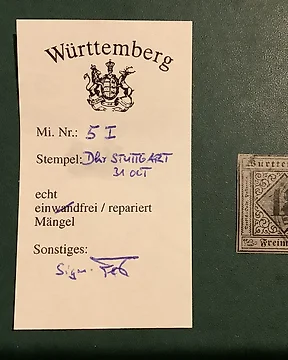 Württemberg
Mi. Nr.: 5 I
Stempel: Dkr STUTTGART
31 OCT
echt
einwandfrei / repariert
Mängel
Sonstiges:
Sign.
Württem
18
Freim